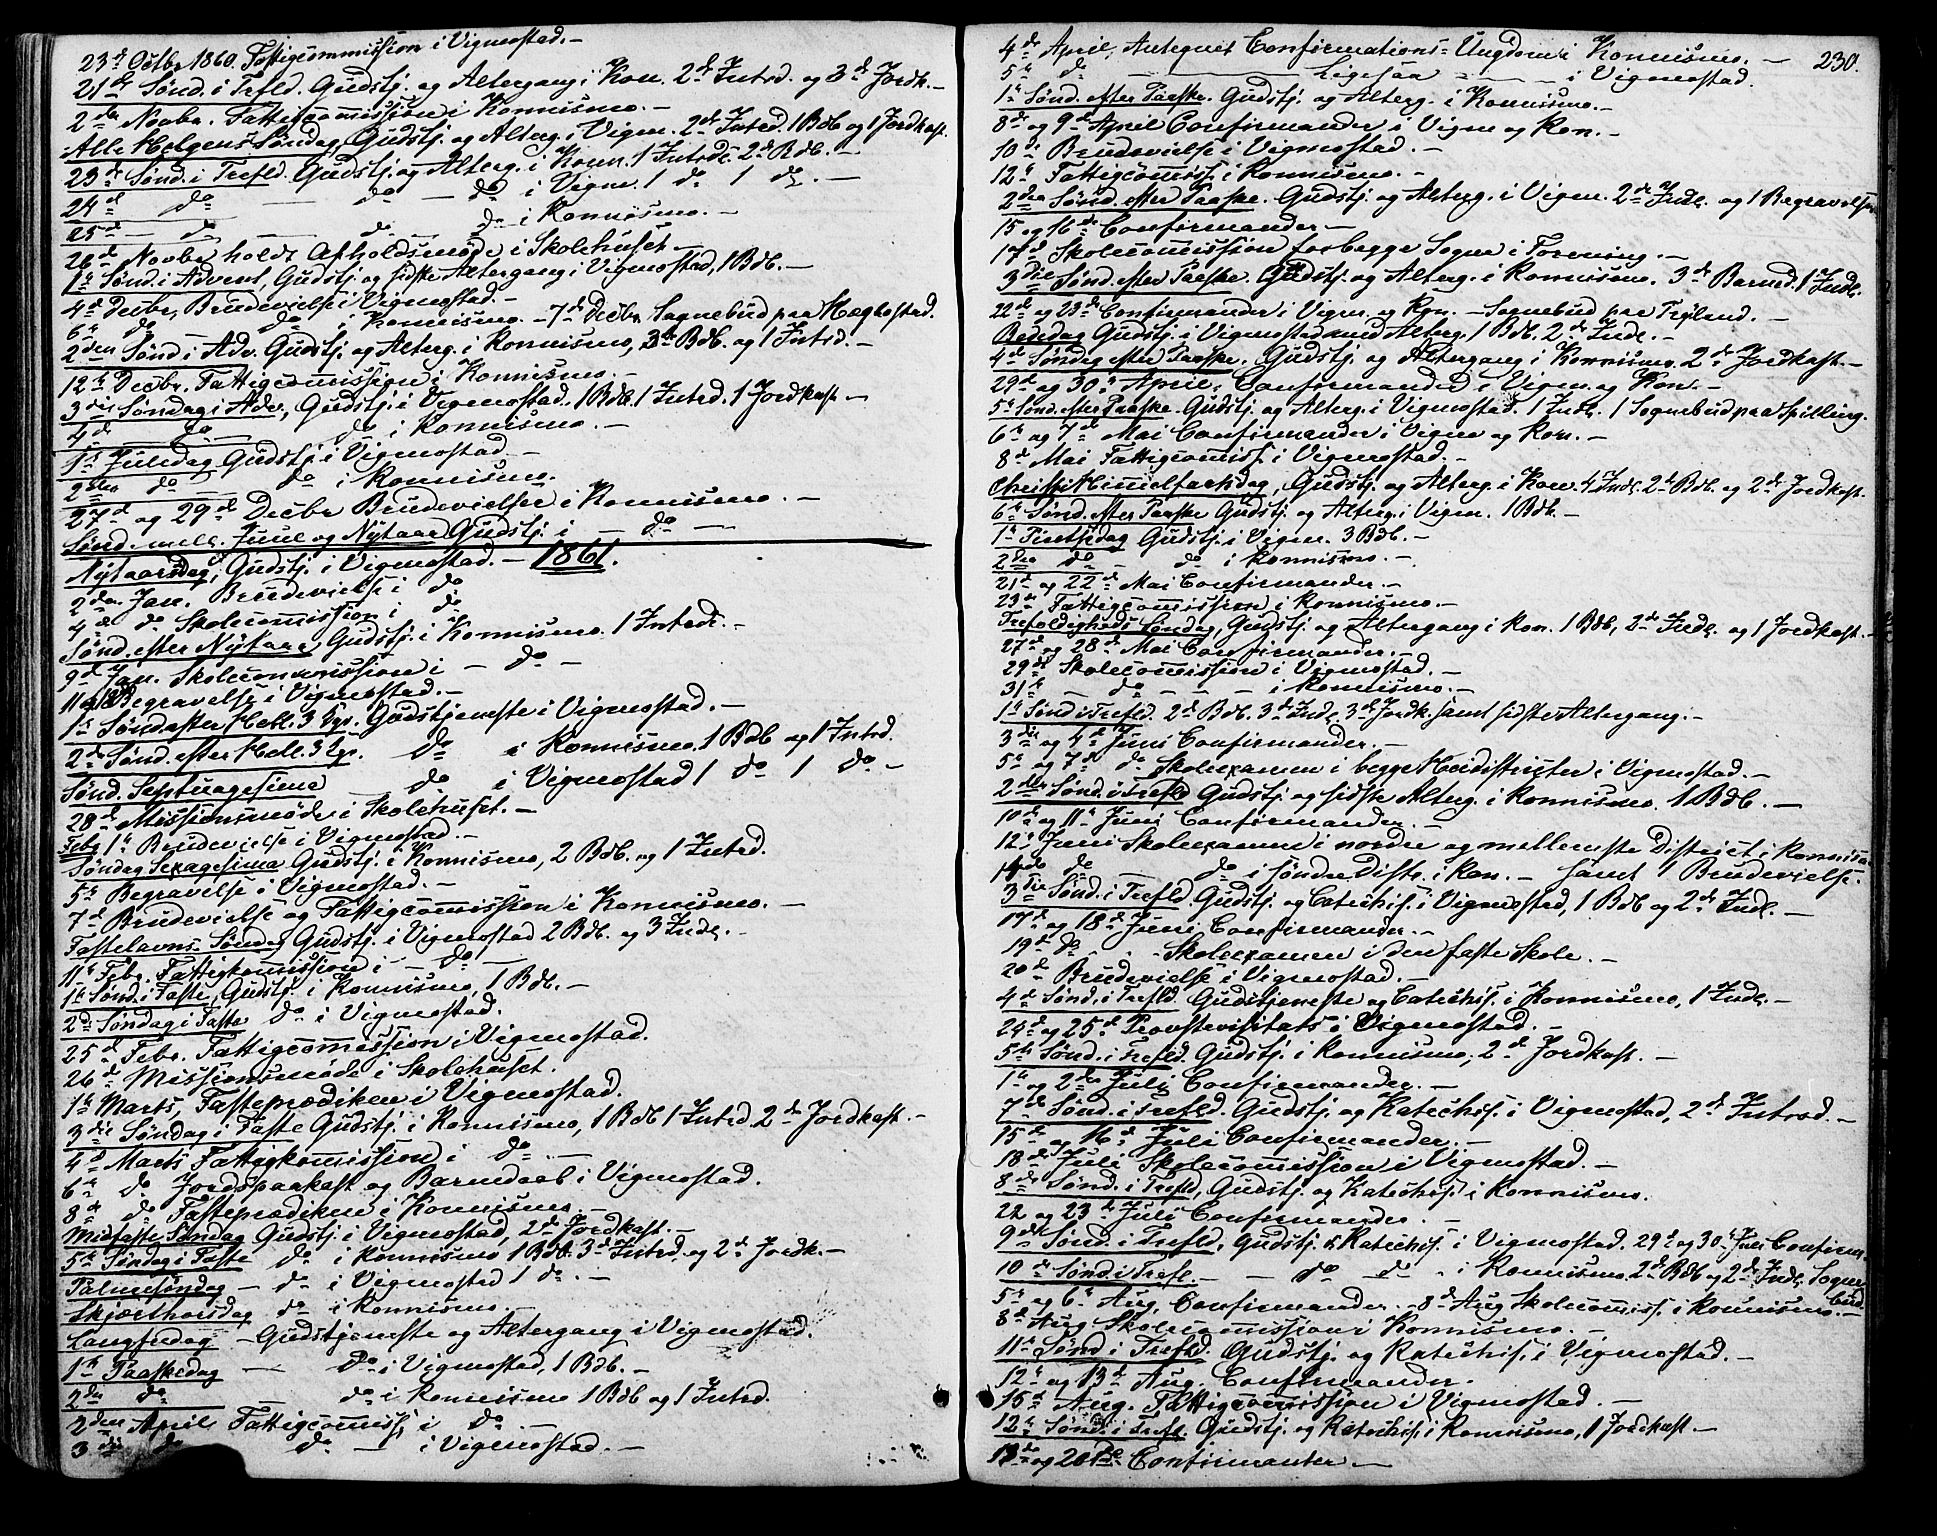 23d Octbr 1860. Fattigcommission i Vigmostad. –
21de Sønd. i Trefld. Gudstj. og Altergang i Kon. 2de Introd. og 3de Jordk. –
2den Novbr. Fattigcomission i Konnismo. –
Alle Helgens Søndag, Gudstj. og Alterg. i Vigm. 2de Introd. 1 Bdb og 1 Jordkast.
23de Sønd. i Trefld. Gudstj. og Alterg. i Konn. 1 Introd. 2de Bdb. –
24d do – do – do i Vigm. 1 do 1 do. –
25d – do – do – do i Konnismo. –
26d Novbr holdt Afholdsmøde i Skolehuset –
1ste Sønd. i Advent, Gudstj. og sidste Altergang i Vigmostad, 1 Bdb. –
4d Decbr, Brudevielse i Vigmostad. –
6te do do i Konnismo. – 7d Decbr Sognebud paa Hægbostad.
2den Sønd i Adv. Gudstj. og Alterg. i Konnismo, 3de Bdb. og 1 Introd. –
12te Decbr. Fattigcomission i Konnismo. –
3die Søndag i Adv, Gudstj. i Vigmostad. 1 Bdb. 1 Introd. 1 Jordkast –
4de do do i Konnismo. –
1ste Juledag Gudstj. i Vigmostad. –
2den do do i Konnismo.
27d og 29d Decbr Brudevielser i Konnismo. –
Sønd. mell. Juul og Nytaar Gudstj. i – do –
Nytaarsdag, Gudstj. i Vigmostad. – 1861.
2den Jan. Brudevielse i do
4de do Skolecomission i do
Sønd. efter Nytaar, Gudstj. i Konnismo. 1 Introd. –
9d Jan. Skolecommission i – do –
11te Begravelse i Vigmostad. –
1ste Sønd efter Hell. 3 Kgr. Gudstjeneste i Vigmostad. –
2d Sønd. efter Hell. 3 Kgr. do i Konnismo. 1 Bdb og 1 Introd.
Sønd. Septuagesima do i Vigmostad 1 do 1 do. –
28d Missionsmøde i Skolehuset. –
Febr 1ste Brudevielse i Vigmostad. –
Søndag Sexagesima Gudstj. i Konnismo, 2 Bdb. og 1 Introd.
5te Begravelse i Vigmostad. –
7d Brudevielse og Fattigcomission i Konnismo. –
Fastelavns Søndag Gudstj. i Vigmostad 2 Bdb. og 3 Indl. –
11te Febr. Fattigkomission i – do –
1ste Sønd. i Faste, Gudstj. i Konnismo, 1 Bdb. –
2d Søndag i Faste do i Vigmostad.
25d Febr. Fattigcomission i Vigmostad.
26d Missionsmøde i Skolehuset.
1ste Marts, Fasteprædiken i Vigmostad.
3die Søndag i Faste Gudstj. i Konnismo, 1 Bdb 1 Introd. 2de Jordkast. –
4d Marts Fattigkomission i do. –
6te do Jordspaakast og Barnedaab i Vigmostad.
8de do Fasteprædiken i Konnismo. –
Midfaste Søndag Gudstj. i Vigmostad, 2de Jordkast. –
5te Søndag i Faste do i Konnismo 1 Bdb. 3de Introd. og 2de Jordk. –
Palmesøndag – do i Vigmostad 1 do. –
Skjærthorsdag do i Konnismo. –
Langfredag – Gudstjeneste og Altergang i Vigmostad.
1ste Paaskedag – do i Vigmostad, 1 Bdb. –
2den do – do i Konnismo 1 Bdb og 1 Introd.
2den April Fattigcomiss. i do. –
3die do do – i Vigmostad. –
230.
4de April, Antegnet Confirmations-Ungdom i Konnismo. –
5te do – Ligesaa – i Vigmostad.
1ste Sønd. efter Paaske. Gudstj. og Alterg. i Konnismo. –
8de og 9de April Confirmander i Vigm og Kon. –
10de Brudevielse i Vigmostad. –
12te Fattigcomiss. i Konnismo. –
2den Sønd. efter Paaske. Gudstj. og Alterg. i Vigm. 2de Indl. og 1 Begravelse
15 og 16de Confirmander –
17d Skolecomission for begge Sogne i Forening. –
3die Sønd. efter Paaske. Gudstj. og Alterg. i Konnismo. 3de Barned. 1 Indl.
22de og 23de Confirmander i Vigm. og Kon. – Sognebud paa Trýland. –
Bededag Gudstj. i Vigmostad med Alterg. 1 Bdb. 2de Indl. –
4de Søndag efter Paaske, Gudstj. og Altergang i Konnismo. 2de Jordkast. –
29d og 30te April, Confirmander i Vigm. og Kon. –
5te Sønd. efter Paaske. Gudstj. og Alterg. i Vigmostad. 1 Indl. 1 Sognebud paa Spilling.
6te og 7d Mai Confirmander i Vigm og Kon. –
8d Mai Fattigcomiss. i Vigmostad. –
Christi Himmelfartsdag, Gudstj. og Alterg. i Kon. 4 Indl. 2de Bdb. og 2de Jordkast.
6te Sønd. efter Paaske Gudstj. og Alterg. i Vigm. 1 Bdb. –
1ste Pintsedag Gudstj. i Vigm. 3 Bdb. –
2den do – do i Konnismo. –
21de og 22de Mai Confirmander. –
23de Fattigcomission i Konnismo. –
Trefoldigheds Søndag, Gudstj. og Altergang i Kon. 1 Bdb, 2de Indl. og 1 Jordkast. –
27d og 28d Mai Confirmander. –
29de Skolecomission i Vigmostad. –
31te – do – – – i Konnismo. –
1ste Sønd i Trefld. 2de Bdb. 3de Indl. 3de Jordk. samt sidste Altergang. –
3die og 4de Juni Confirmander. –
5te og 7d do Skoleexamen i begge Herdistricter i Vigmostad. –
2den Sønd. i Trefld Gudstj. og sidste Alterg. i Konnismo. 1 Bdb. –
10de og 11te Juni Confirmander. –
12te Juni Skoleexamen i nordre og mellemste District i Konnismo
14de do – do i søndre Distr. i Kon. – samt 1 Brudevielse.
3die Sønd. i Trefld. Gudstj. og Catechis. i Vigmostad, 1 Bdb og 2de Indl. –
17d og 18d Juni, Confirmander. –
19d do – Skoleexamen i den faste Skole. –
20de Brudevielse i Vigmostad. –
4de Sønd. i Trefld. Gudstjeneste og Catechis. i Konnismo, 1 Indl. –
24de og 25d Provstevisitats i Vigmostad. –
5te Sønd. i Trefld. Gudstj. i Konnismo. 2de Jordkast. –
1ste og 2den Juli Confirmander. –
7de Sønd. i Trefld. Gudstj. og Katechis. i Vigmostad, 2de Introd. –
15te og 16de Juli Confirmander. –
18de Juli Skolecomission i Vigmostad. –
8de Sønd. i Trefld, Gudstj. og Katechis. i Konnismo.
22 og 23de Juli Confirmander. –
9de Sønd. i Trefld, Gudstj. & Katechis. i Vigmostad. 29d og 30te Juli Confirm.
10de Sønd i Trefl. – – do do – i Konnismo. 2de Bdb og 2de Indl. Sogne
bud.
5te og 6te Aug, Confirmander. – 8de Aug Skolecomiss. i Konnismo –
8de Aug Skolecomission i Konnismo. –
11te Sønd i Trefld. Gudstj. og Katechis. i Vigmostad. –
12te og 13de Aug. Confirmander.
15de Aug. Fattigcomission i Vigmostad. –
12te Sønd. i Trefl. Gudstj. og Katechis. i Konnismo, 1 Jordkast –
19de og 20de Confirmanter –